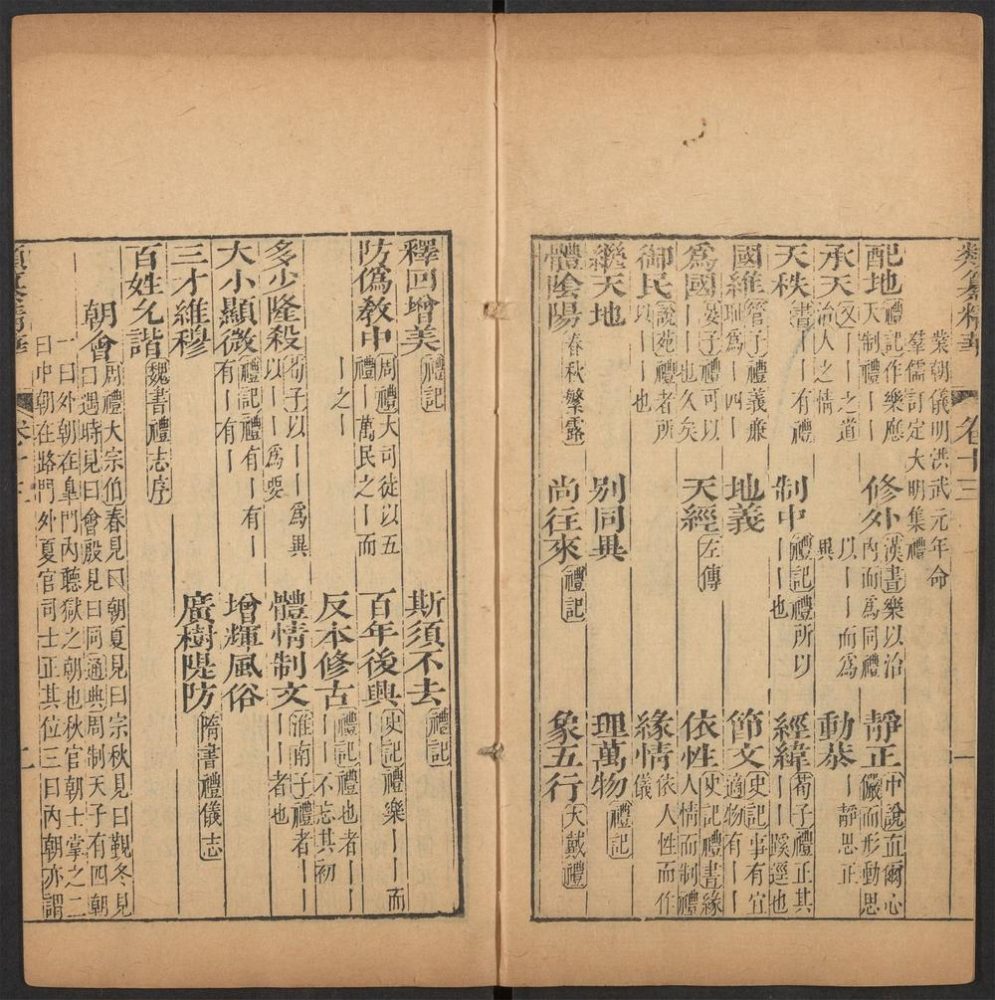 類纂精華 卷十三 一
葉朝儀明洪武元年命
羣儒訂定大明集禮
配地 禮記作樂應天制禮丨丨 修外 漢書樂以治內而爲同禮 靜正 中說直爾心儼而形動思
承天 又丨丨之道治人之情 以丨丨而爲異 動恭 丨靜思正
天秩 書丨丨有禮 制中 禮記禮所以丨丨也 經緯 荀子禮正其丨丨蹊逕也
國維 管子禮義廉恥爲丨丨四丨 地義 節文 史記事有宜適物有丨丨
爲國 晏子禮可以丨丨也久矣 天經 左傳 依性 史記禮書緣人情而制禮
御民 說苑禮者所以丨丨也 緣情 依人性而作儀
繼天地 別同異 理萬物 禮記
體陰陽 春秋繁露 尚往來 禮記 象五行 大戴禮
釋回增美 禮記 斯須不去 禮記
防僞敎中 周禮大司徒以五禮丨萬民之丨而丨之丨 百年後興 史記禮樂丨丨丨而丨
反本修古 禮記禮也者丨丨丨丨不忘其初
多少隆殺 荀子以丨丨爲異以丨丨爲要 體情制文 淮南子禮者丨丨丨丨者也
大小顯微 禮記禮有丨有丨有丨有丨 增輝風俗
三才維穆 廣樹隄防 隋書禮儀志
百姓允諧 魏書禮志序
朝會 周禮大宗伯春見曰朝夏見曰宗秋見曰覲冬見
曰遇時見曰會殷見曰同通典周制天子有四朝
一曰外朝在臯門內聽獄之朝也秋官朝士掌之二
曰中朝在路門外夏官司士正其位三曰內朝亦謂